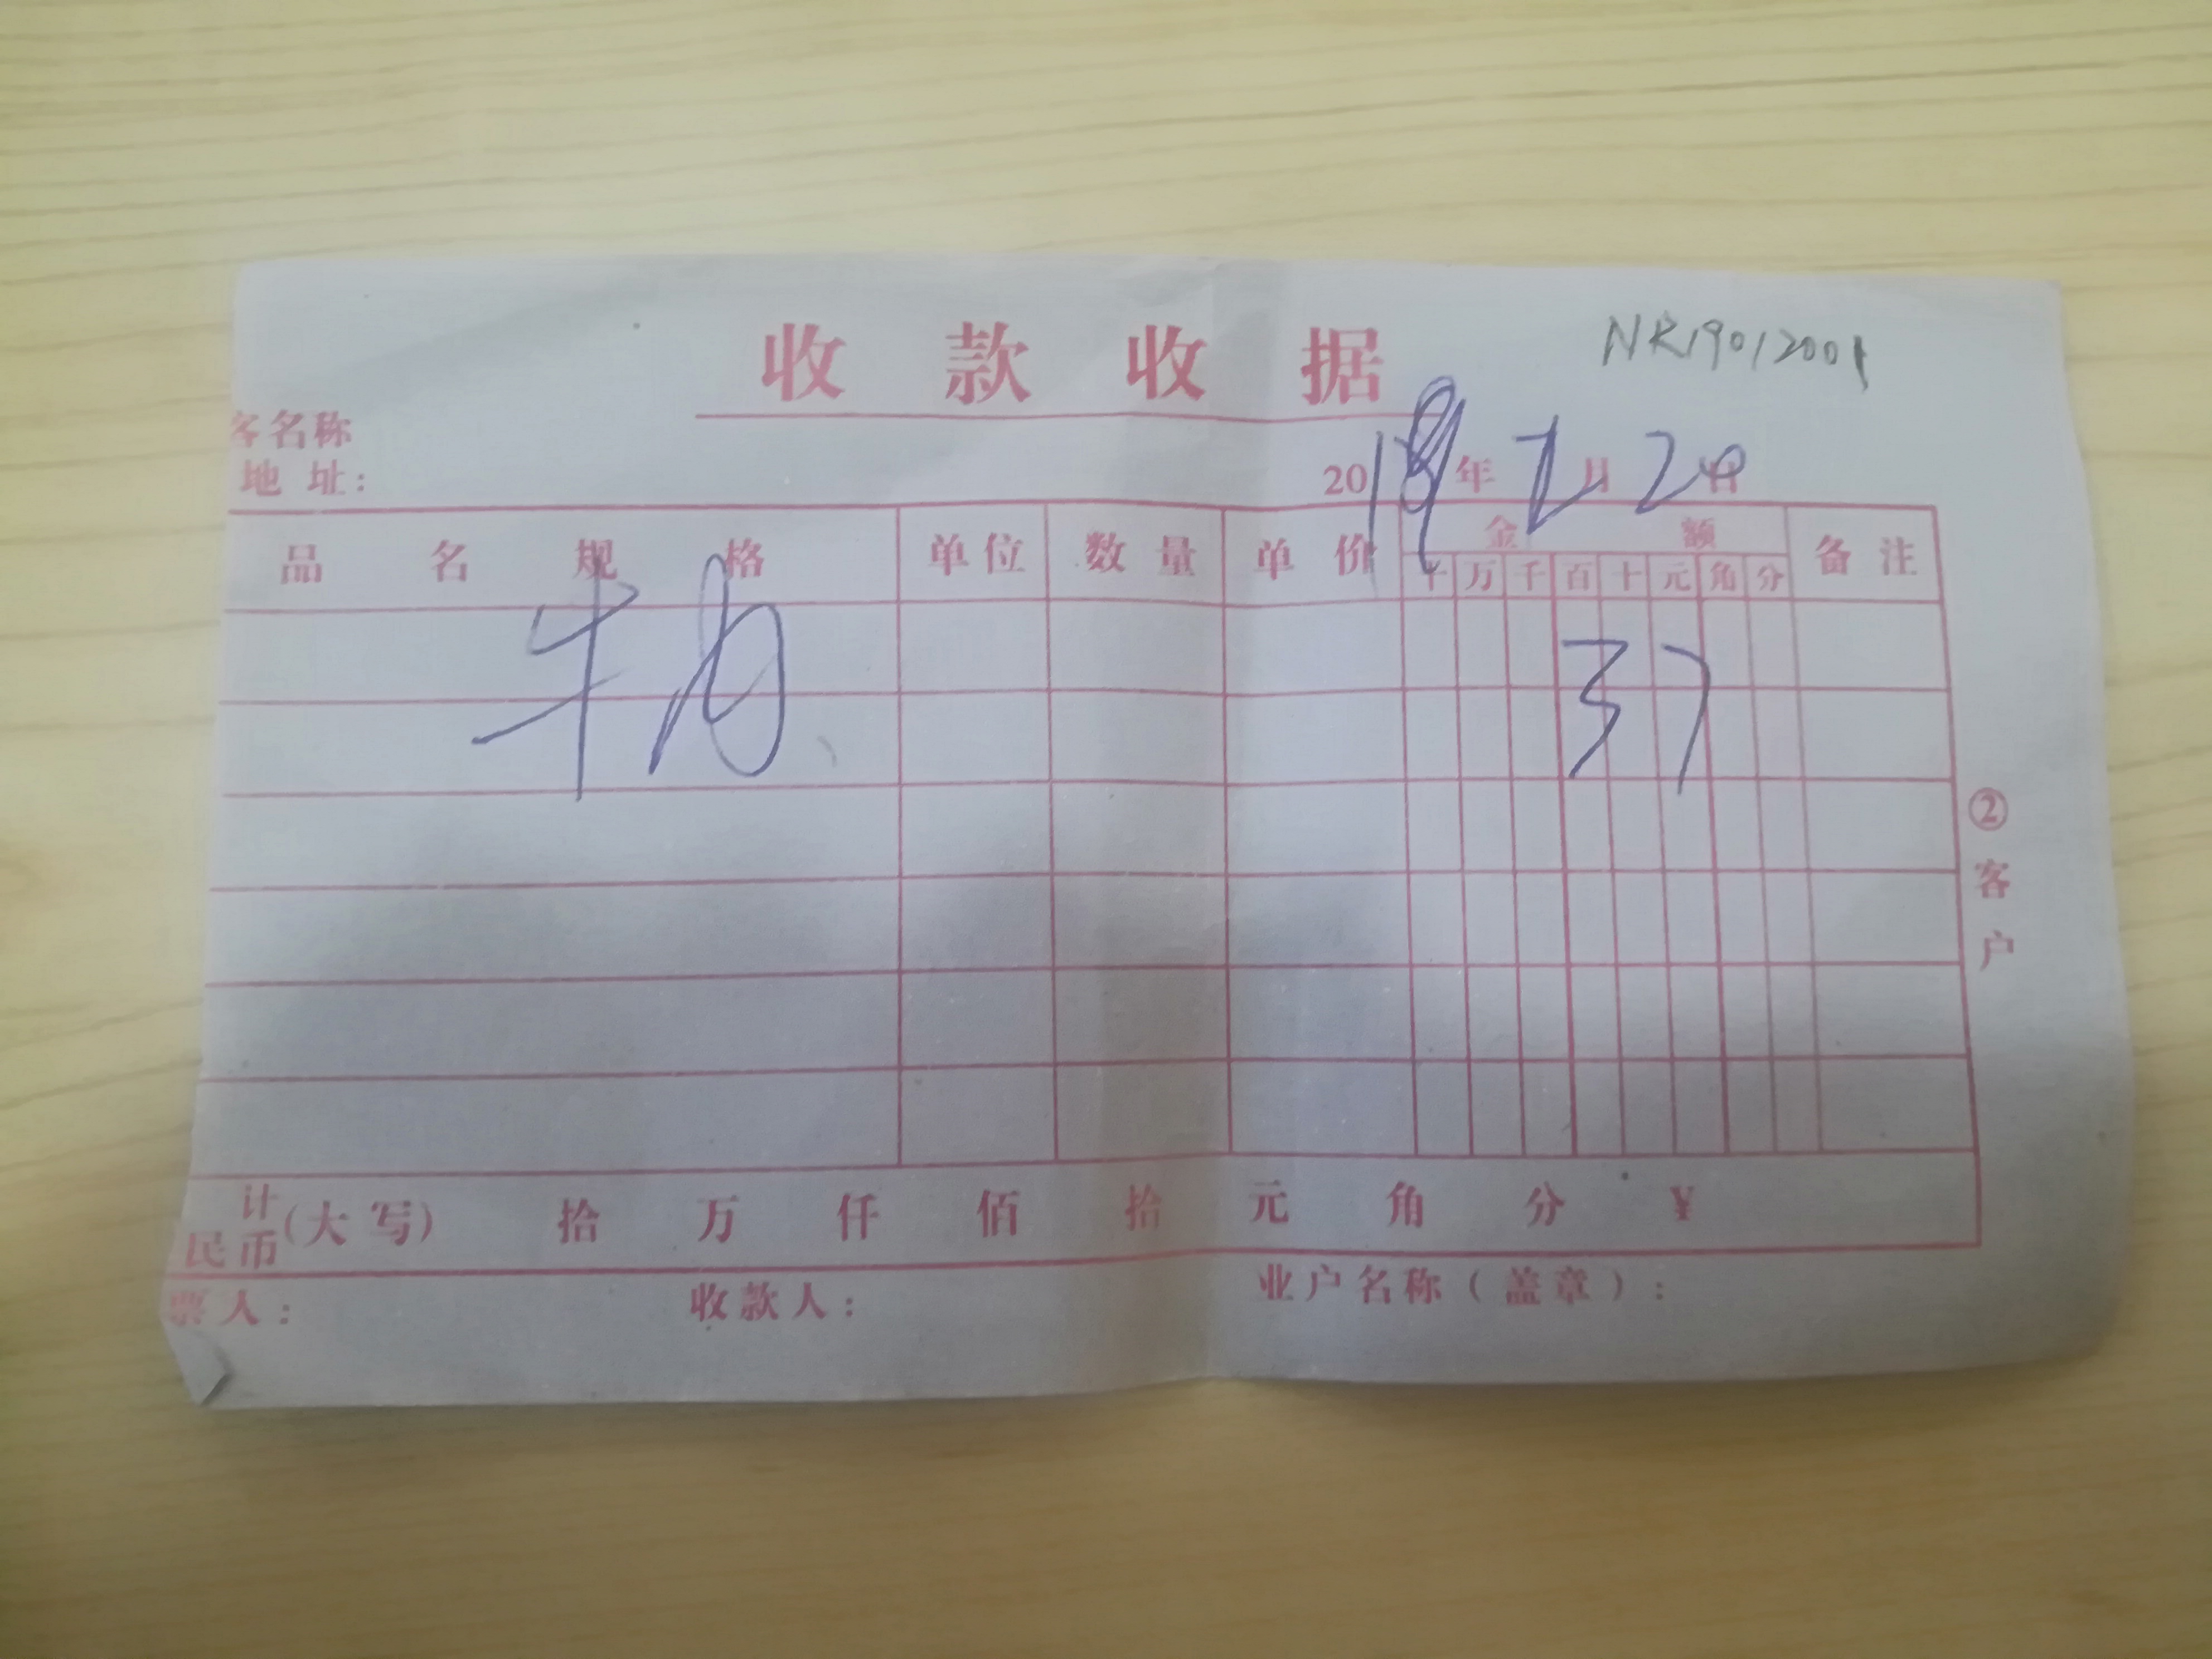 收款收据
NR19012001
客名称
地址：
2019年2月20日
品名规格 单位 数量 单价 金额 备注
十 万 千 百 十 元 角 分
牛肉 37
②客户
计
民币(大写) 拾 万 仟 佰 拾 元 角 分 ¥
票人： 收款人： 业户名称（盖章）：